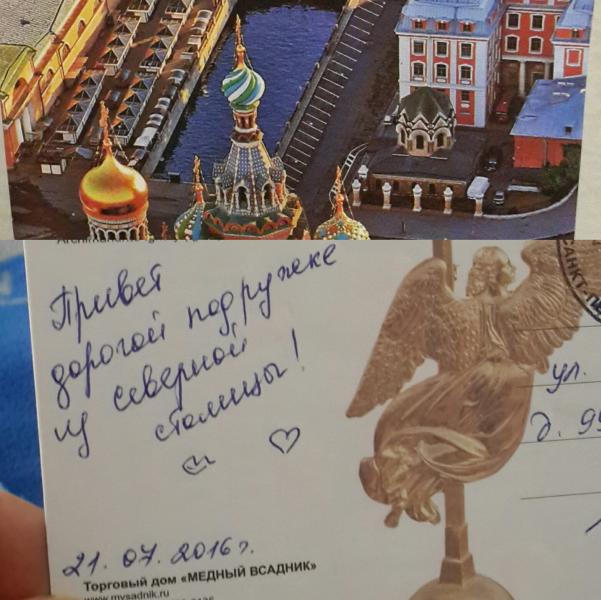 Привет
дорогой подружке
из северной
столицы!
21.07.2016г.
Торговый дом «МЕДНЫЙ ВСАДНИК»
www.mysadnik.ru
САНКТ-ПЕ
ул.
д. 99